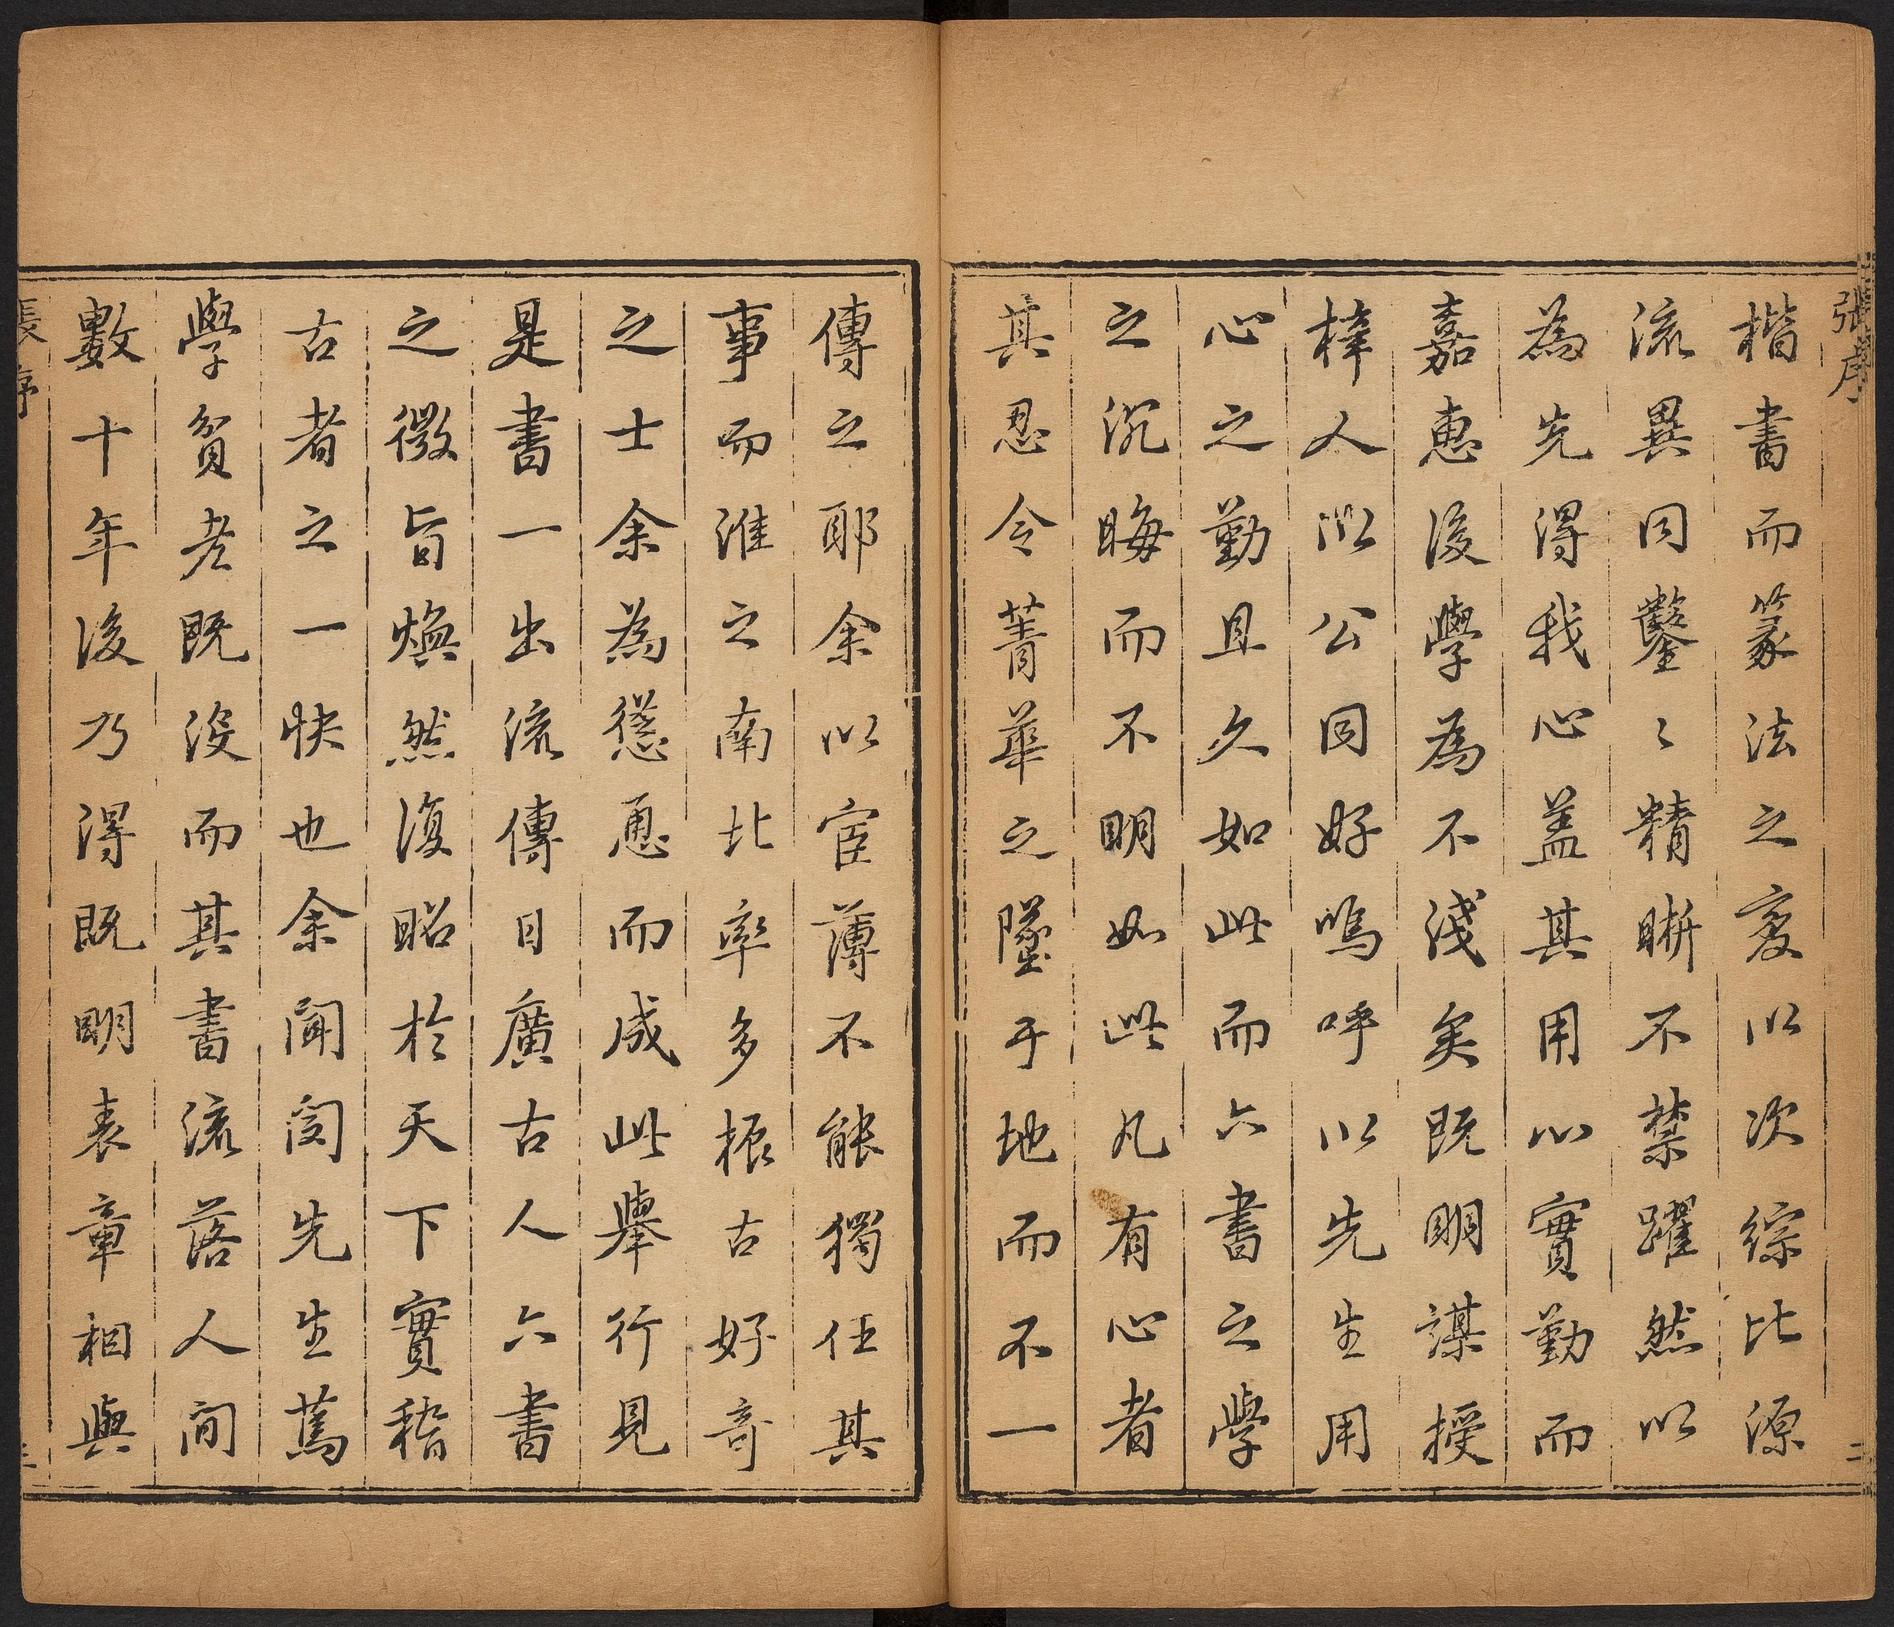 張序
楷書而篆法之變以次綜比源
流異同鑿〻精晰不禁躍然以
為先得我心蓋其用心實勤而
嘉惠後學為不淺矣既明謀授
梓人以公同好嗚呼以先生用
心之勤且久如此而六書之學
之沉晦而不明如此凡有心者
其忍令菁華之墜于地而不一
二
傳之耶余以宦薄不能獨任其
事而淮之南北率多振古好奇
之士余為慫恿而成此舉行見
是書一出流傳日廣古人六書
之微旨煥然復昭於天下實稽
古者之一快也余聞閔先生篤
學貧老既沒而其書流落人間
數十年後乃得既明表章相與
張序
三